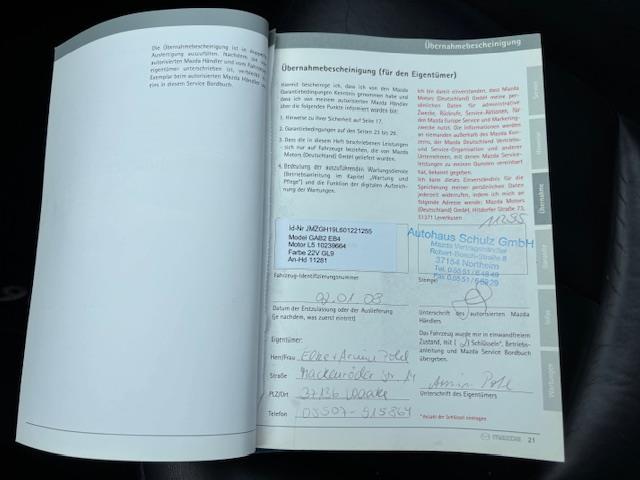 Die Übernahmebescheinigung ist in doppelter
Ausfertigung auszufüllen. Nachdem sie vom
autorisierten Mazda Händler und vom Fahrzeug-
eigentümer unterschrieben ist, verbleibt ein
Exemplar beim autorisierten Mazda Händler und
eins in diesem Service Bordbuch.
Übernahmebescheinigung
Übernahmebescheinigung (für den Eigentümer)
Hiermit bescheinige ich, dass ich von den Mazda
Garantiebedingungen Kenntnis genommen habe und
dass ich von meinem autorisierten Mazda Händler
über die folgenden Punkte informiert worden bin:
1. Hinweise zu Ihrer Sicherheit auf Seite 17.
2. Garantiebedingungen auf den Seiten 23 bis 29.
3. Dass die in diesem Heft beschriebenen Leistungen
- sich nur auf Fahrzeuge beziehen, die von Mazda
Motors (Deutschland) GmbH geliefert wurden.
4. Bedeutung der auszuführenden Wartungsdienste
(Betriebsanleitung im Kapitel „Wartung und
Pflege") und die Funktion der digitalen Aufzeich-
nung der Wartungen.
Ich bin damit einverstanden, dass Mazda
Motors (Deutschland) GmbH meine per-
sönlichen Daten für administrative
Zwecke, Rückrufe, Service-Aktionen, für
den Mazda Europe Service und Marketing-
zwecke nutzt. Die Informationen werden
an niemanden außerhalb des Mazda Kon-
zerns, der Mazda Deutschland Vertriebs-
und Service-Organisation und anderer
Unternehmen, mit denen Mazda Service-
leistungen zu meinen Gunsten vereinbart
hat, bekannt gegeben.
Ich kann dieses Einverständnis für die
Speicherung meiner persönlichen Daten
jederzeit widerrufen, indem ich mich an
folgende Adresse wende: Mazda Motors
(Deutschland) GmbH, Hitdorfer Straße 73,
51371 Leverkusen
11295
Id-Nr JMZGH19L601221255
Model GAB2 EB4
Motor L5 10239664
Farbe 22V GL9
An-Hd 11281
Autohaus Schulz GmbH
Mazda Vertragshändler
Robert-Bosch-Straße 8
37154 Northeim
Tel. 0 55 51 / 6 48 49
Fax 0 55 51 / 6 69 29
Fahrzeug-Identifizierungsnummer
Stempel
02.01.08
Datum der Erstzulassung oder der Auslieferung
(je nachdem, was zuerst eintritt)
Unterschrift des autorisierten Mazda
Händlers
Das Fahrzeug wurde mir in einwandfreiem
Zustand, mit (2) Schlüsseln*, Betriebs-
anleitung und Mazda Service Bordbuch
übergeben.
Eigentümer:
Herr/Frau Elke + Armin Pohl
Straße
PLZ/Ort
Telefon 05507-915864
Armin Pohl
Unterschrift des Eigentümers
*Anzahl der Schlüssel eintragen
mazda 21
Service
Übernahme
Garantie
Infos
Wartungen